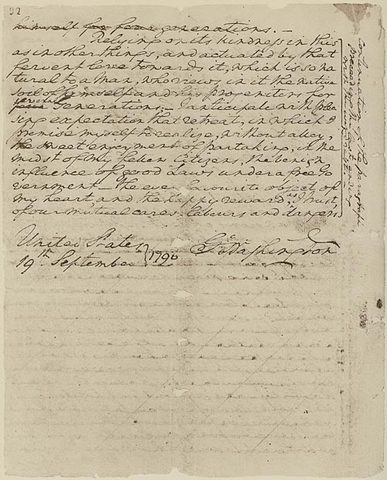 32
himself for four generations. —
Relying on its kindness in this
as in other things, and actuated by that
fervent love towards it, which is so na-
tural to a man, who views in it the native
soil of himself and his progenitors for
several
four Generations. I anticipate with plea-
sing expectation that retreat, in which I
promise myself to realize, without alloy,
the sweet enjoyment of partaking, in the
midst of my fellow Citizens, the benign
influence of good Laws under a free Go-
vernment — the ever favourite object of
my heart, and the happy reward, I trust,
of our mutual cares, labours and dangers
United States
19th September 1796
Go Washington